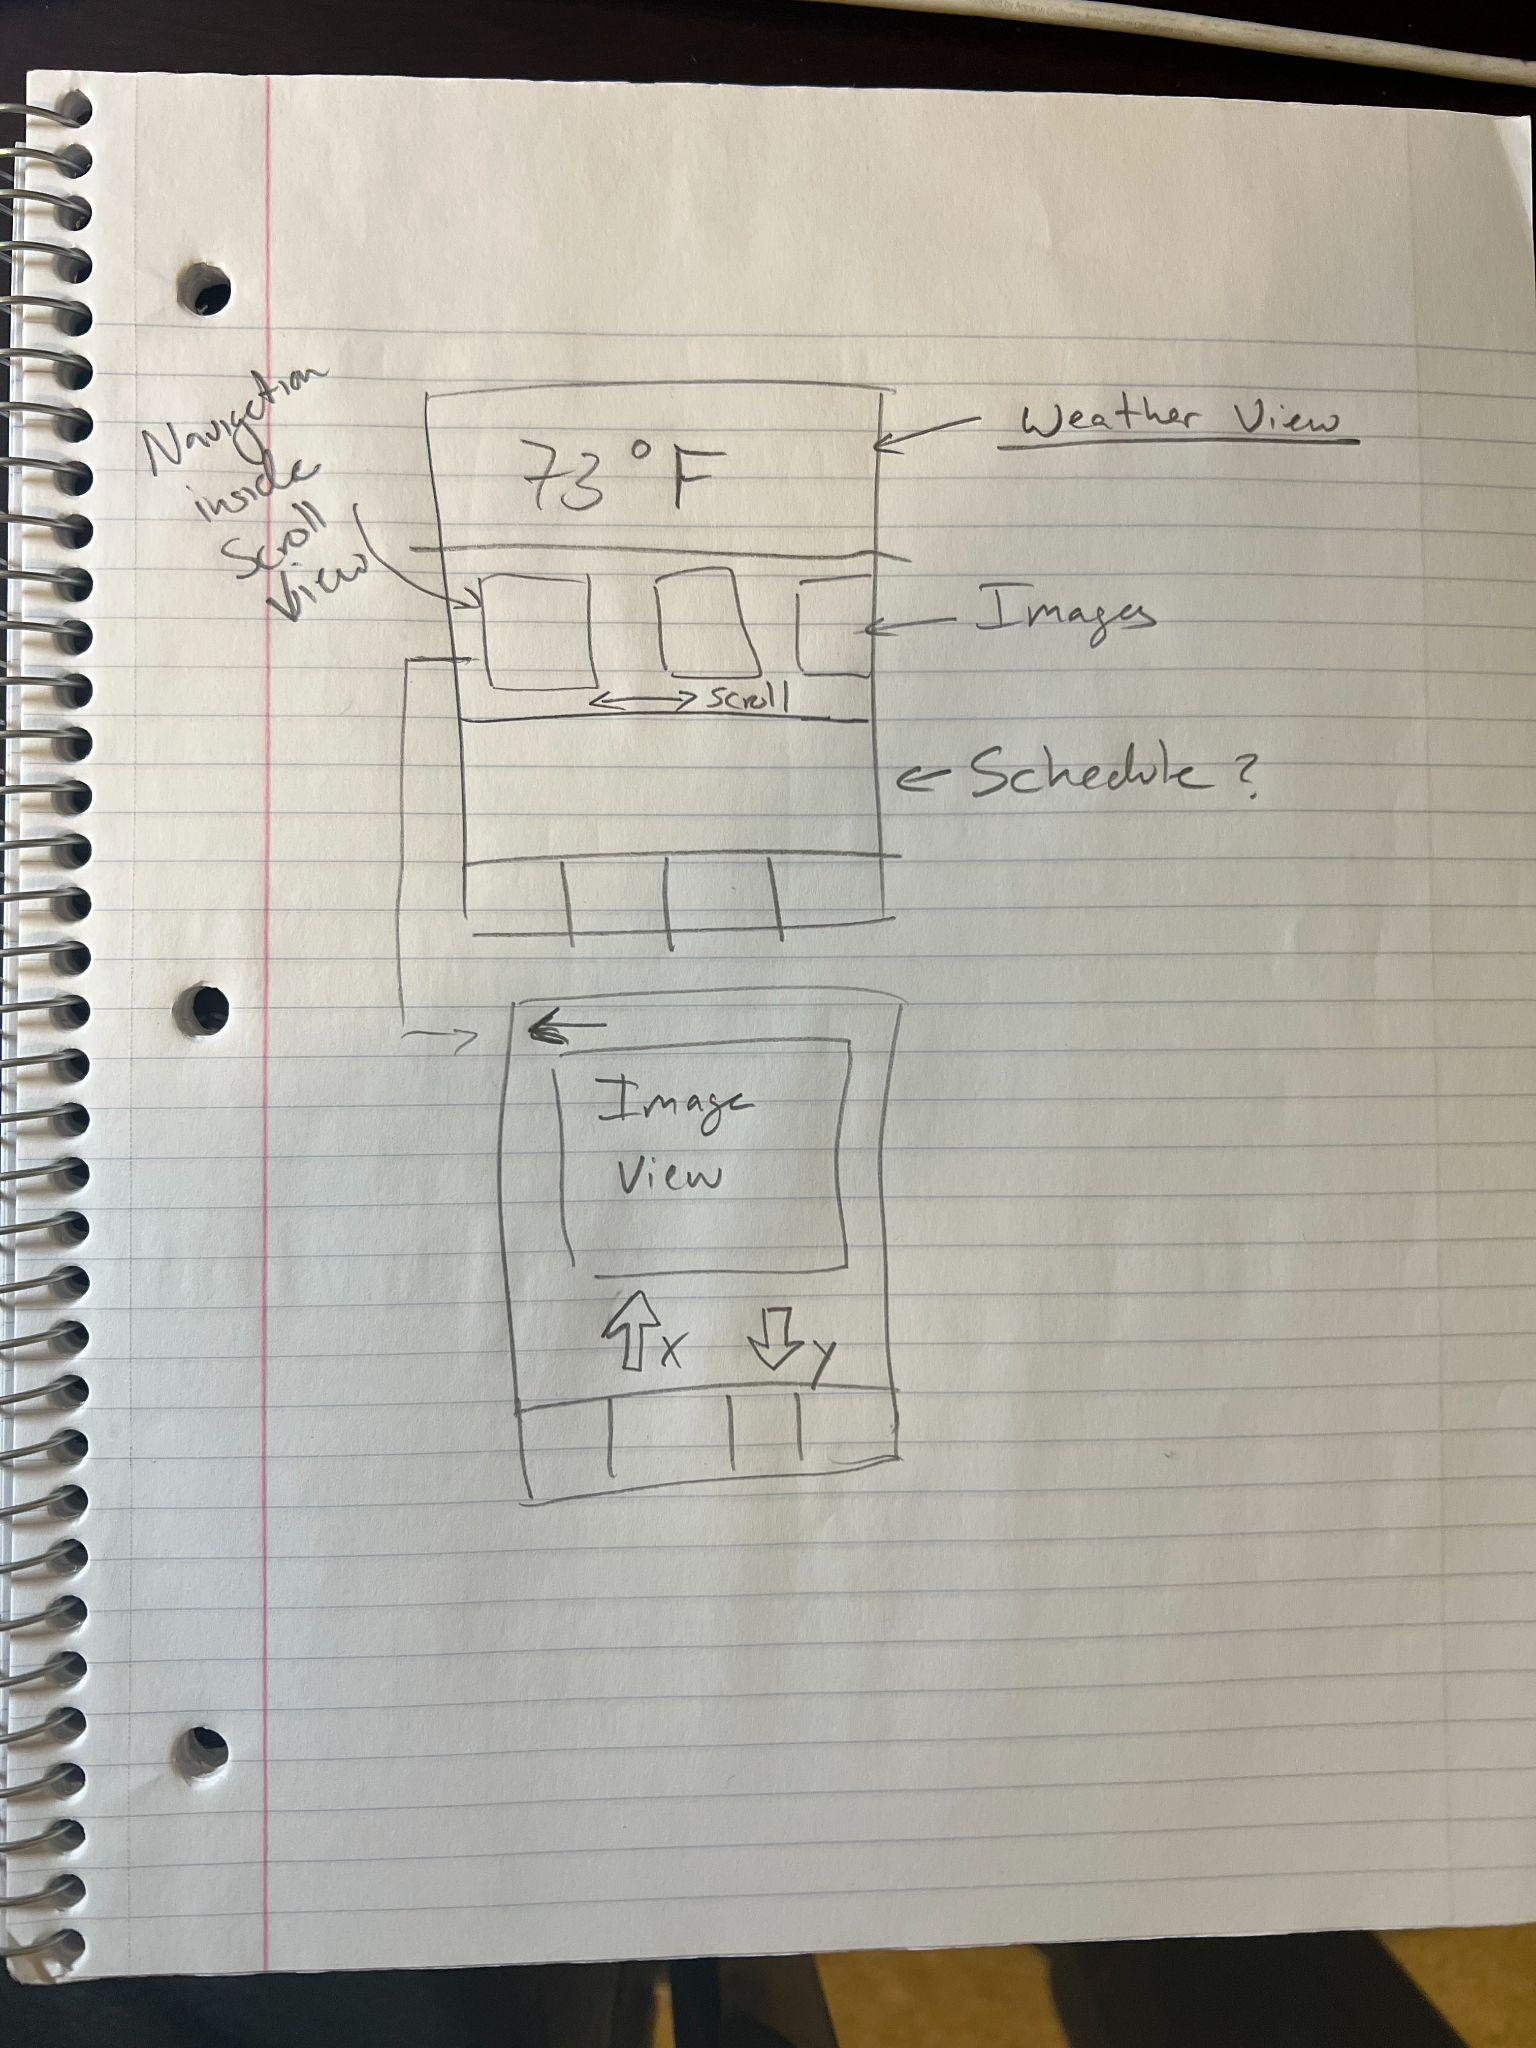 Navigation
inside
Scroll
View
73°F
Weather View
Images
scroll
Schedule?
Image
View
X
Y